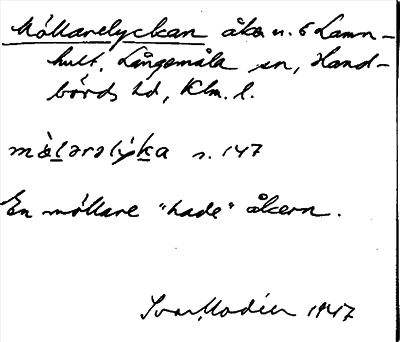 Möllarelyckan åker n. 6 Lamn-
hult, Långemåla sn, Hand-
börds hd, Klm. l.
mö̀larəly̆ka s. 147
En möllare "hade" åkern.
Ivar Modéer 1947